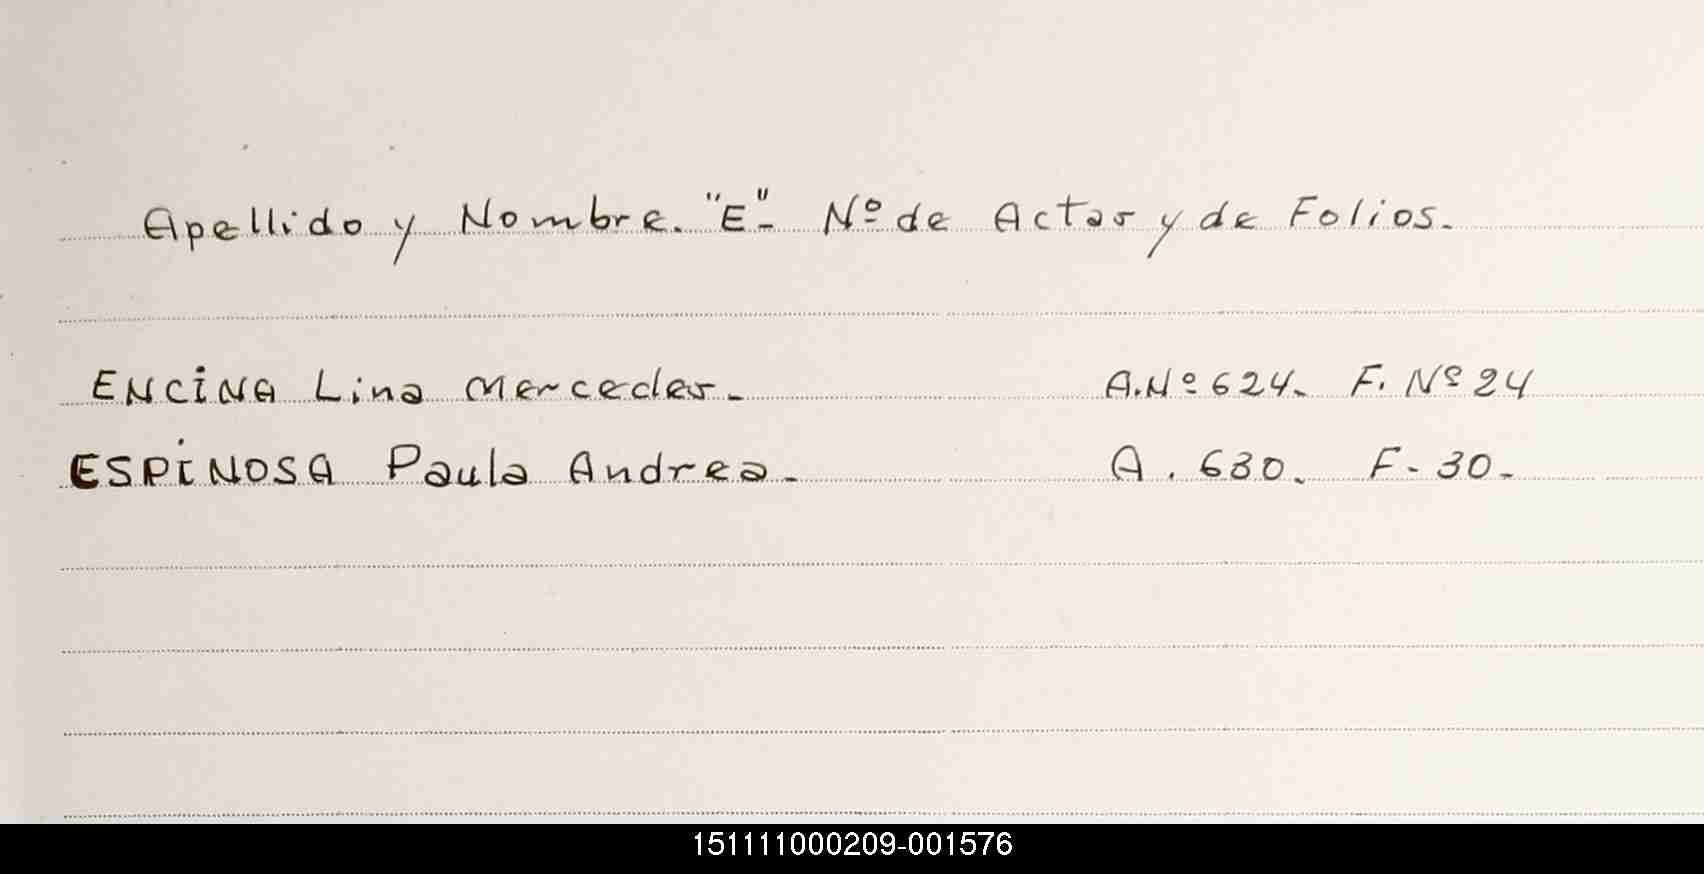 Apellido y Nombre. "E"- Nº de Actas y de Folios.
ENCINA Lina Mercedes. A.Nº 624. F. Nº 24
ESPINOSA Paula Andrea. A. 630. F- 30.
151111000209-001576